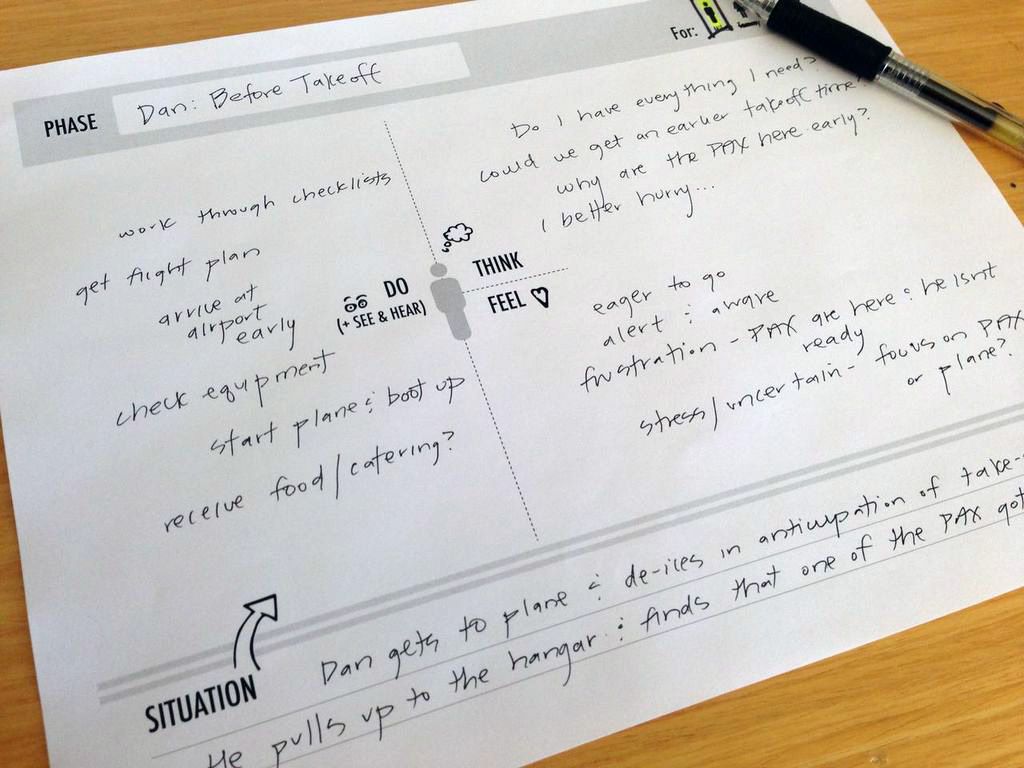 For:
PHASE
Dan: Before Takeoff
work through checklists
get flight plan
arrive at
airport
early
check equipment
start plane & boot up
receive food/catering?
DO
(+ SEE & HEAR)
THINK
Do I have everything I need?
could we get an earlier takeoff time?
why are the PAX here early?
I better hurry...
FEEL
eager to go
alert & aware
frustration - PAX are here & he isnt
ready
stress/uncertain - focus on PAX
or plane?
SITUATION
Dan gets to plane & de-ices in anticipation of take-
He pulls up to the hangar & finds that one of the PAX got